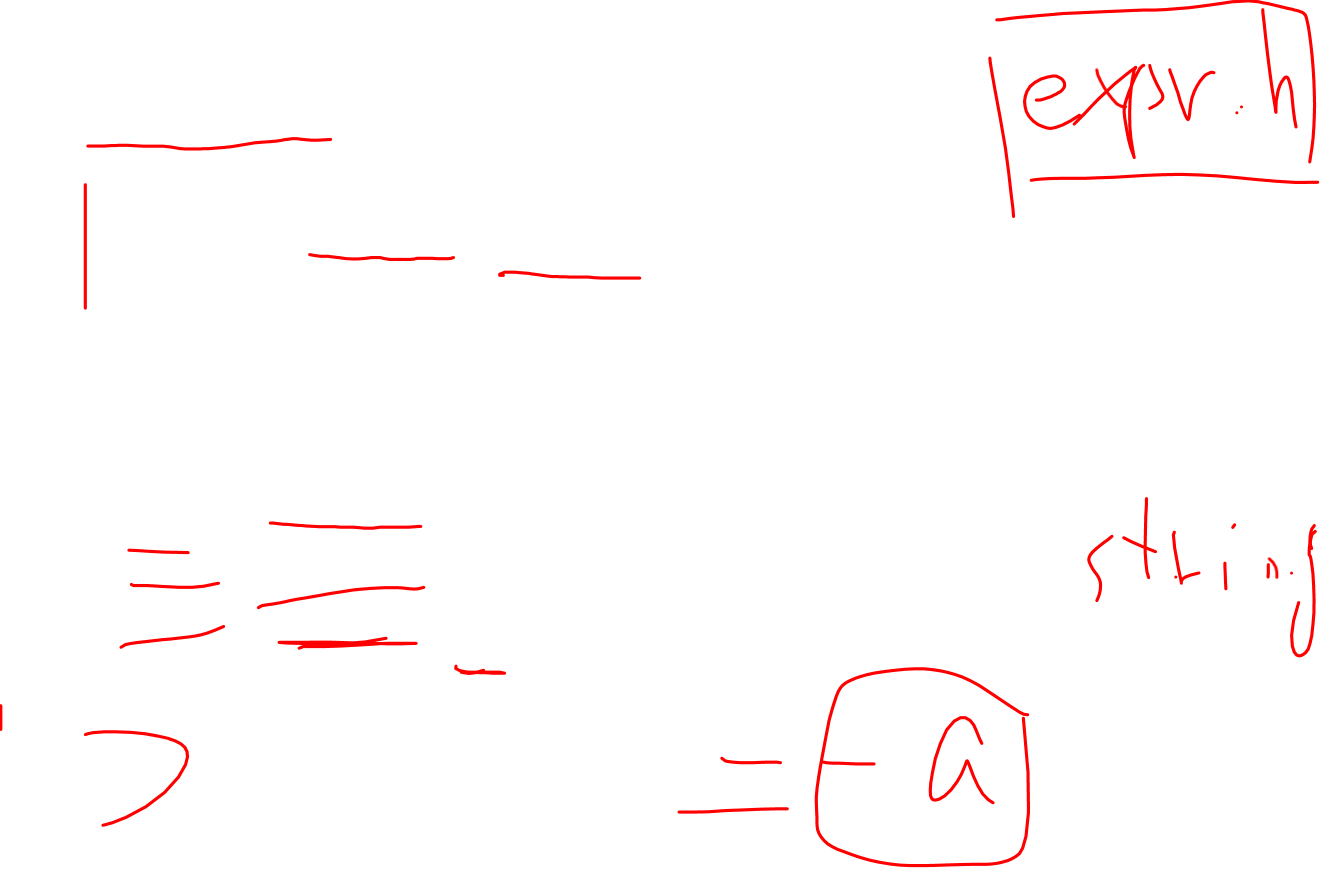 expr.h
string
= - a